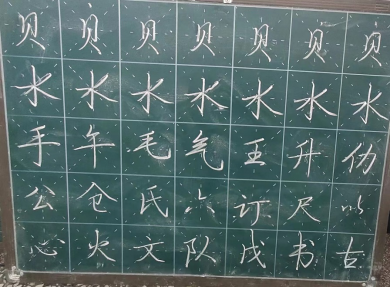 贝贝贝贝贝贝贝
水水水水水水水
手午毛气王升伪
公仓氏六订尺以
心火文队戍书古